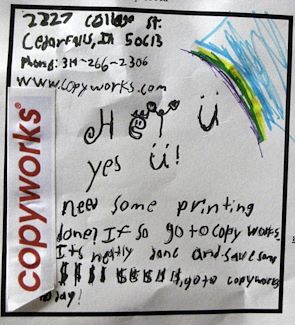 2227 College St.
Cedarfalls, IA 50613
Phone: 319-266-2306
www.copyworks.com
Hey Ü
yes Ü!
copyworks®
need some printing
done? If so go to copy works
Its neatly done and save some
$$$$ $$$$$, go to copyworks
today!